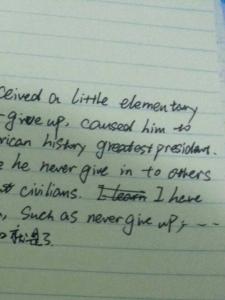 ceived a little elementary
give up, caused him to
rican history greatest president.
e he never give in to others
civilians. I learn I have
, such as never give up, --